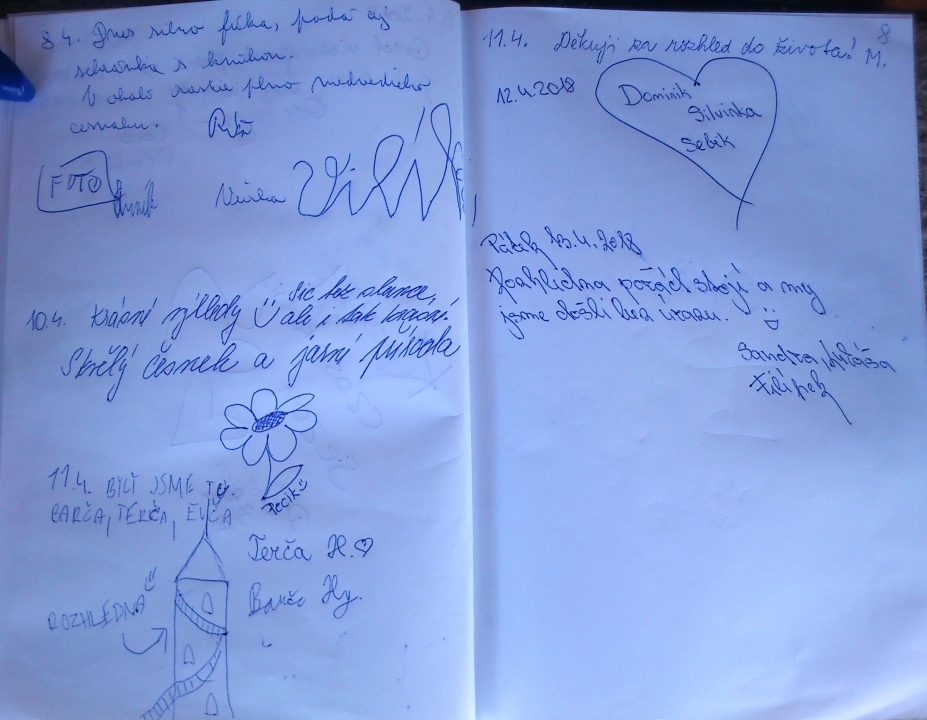 8 4. Dnes silno fička, padá aj
schránka s knihou.
V okolí rastie plno medvedieho
cesnaku.
FOTO
10.4. Krásné výhledy Sic bez slunce,
ale i tak krásné.
česnek a jarní příroda
Pecik
11.4. BYLI JSME TU.
BARČA, TERČA, EVČA
Terča H.
Barča Hy.
ROZHLEDNA
8
11.4. Děkuji za rozhled do života! M.
12.4.2018
Dominik
Silvinka
Sebik
Pátek 13.4.2018
Rozhledna pořád stojí a my
jsme došli bez úrazu.
Sandra,
Filípek